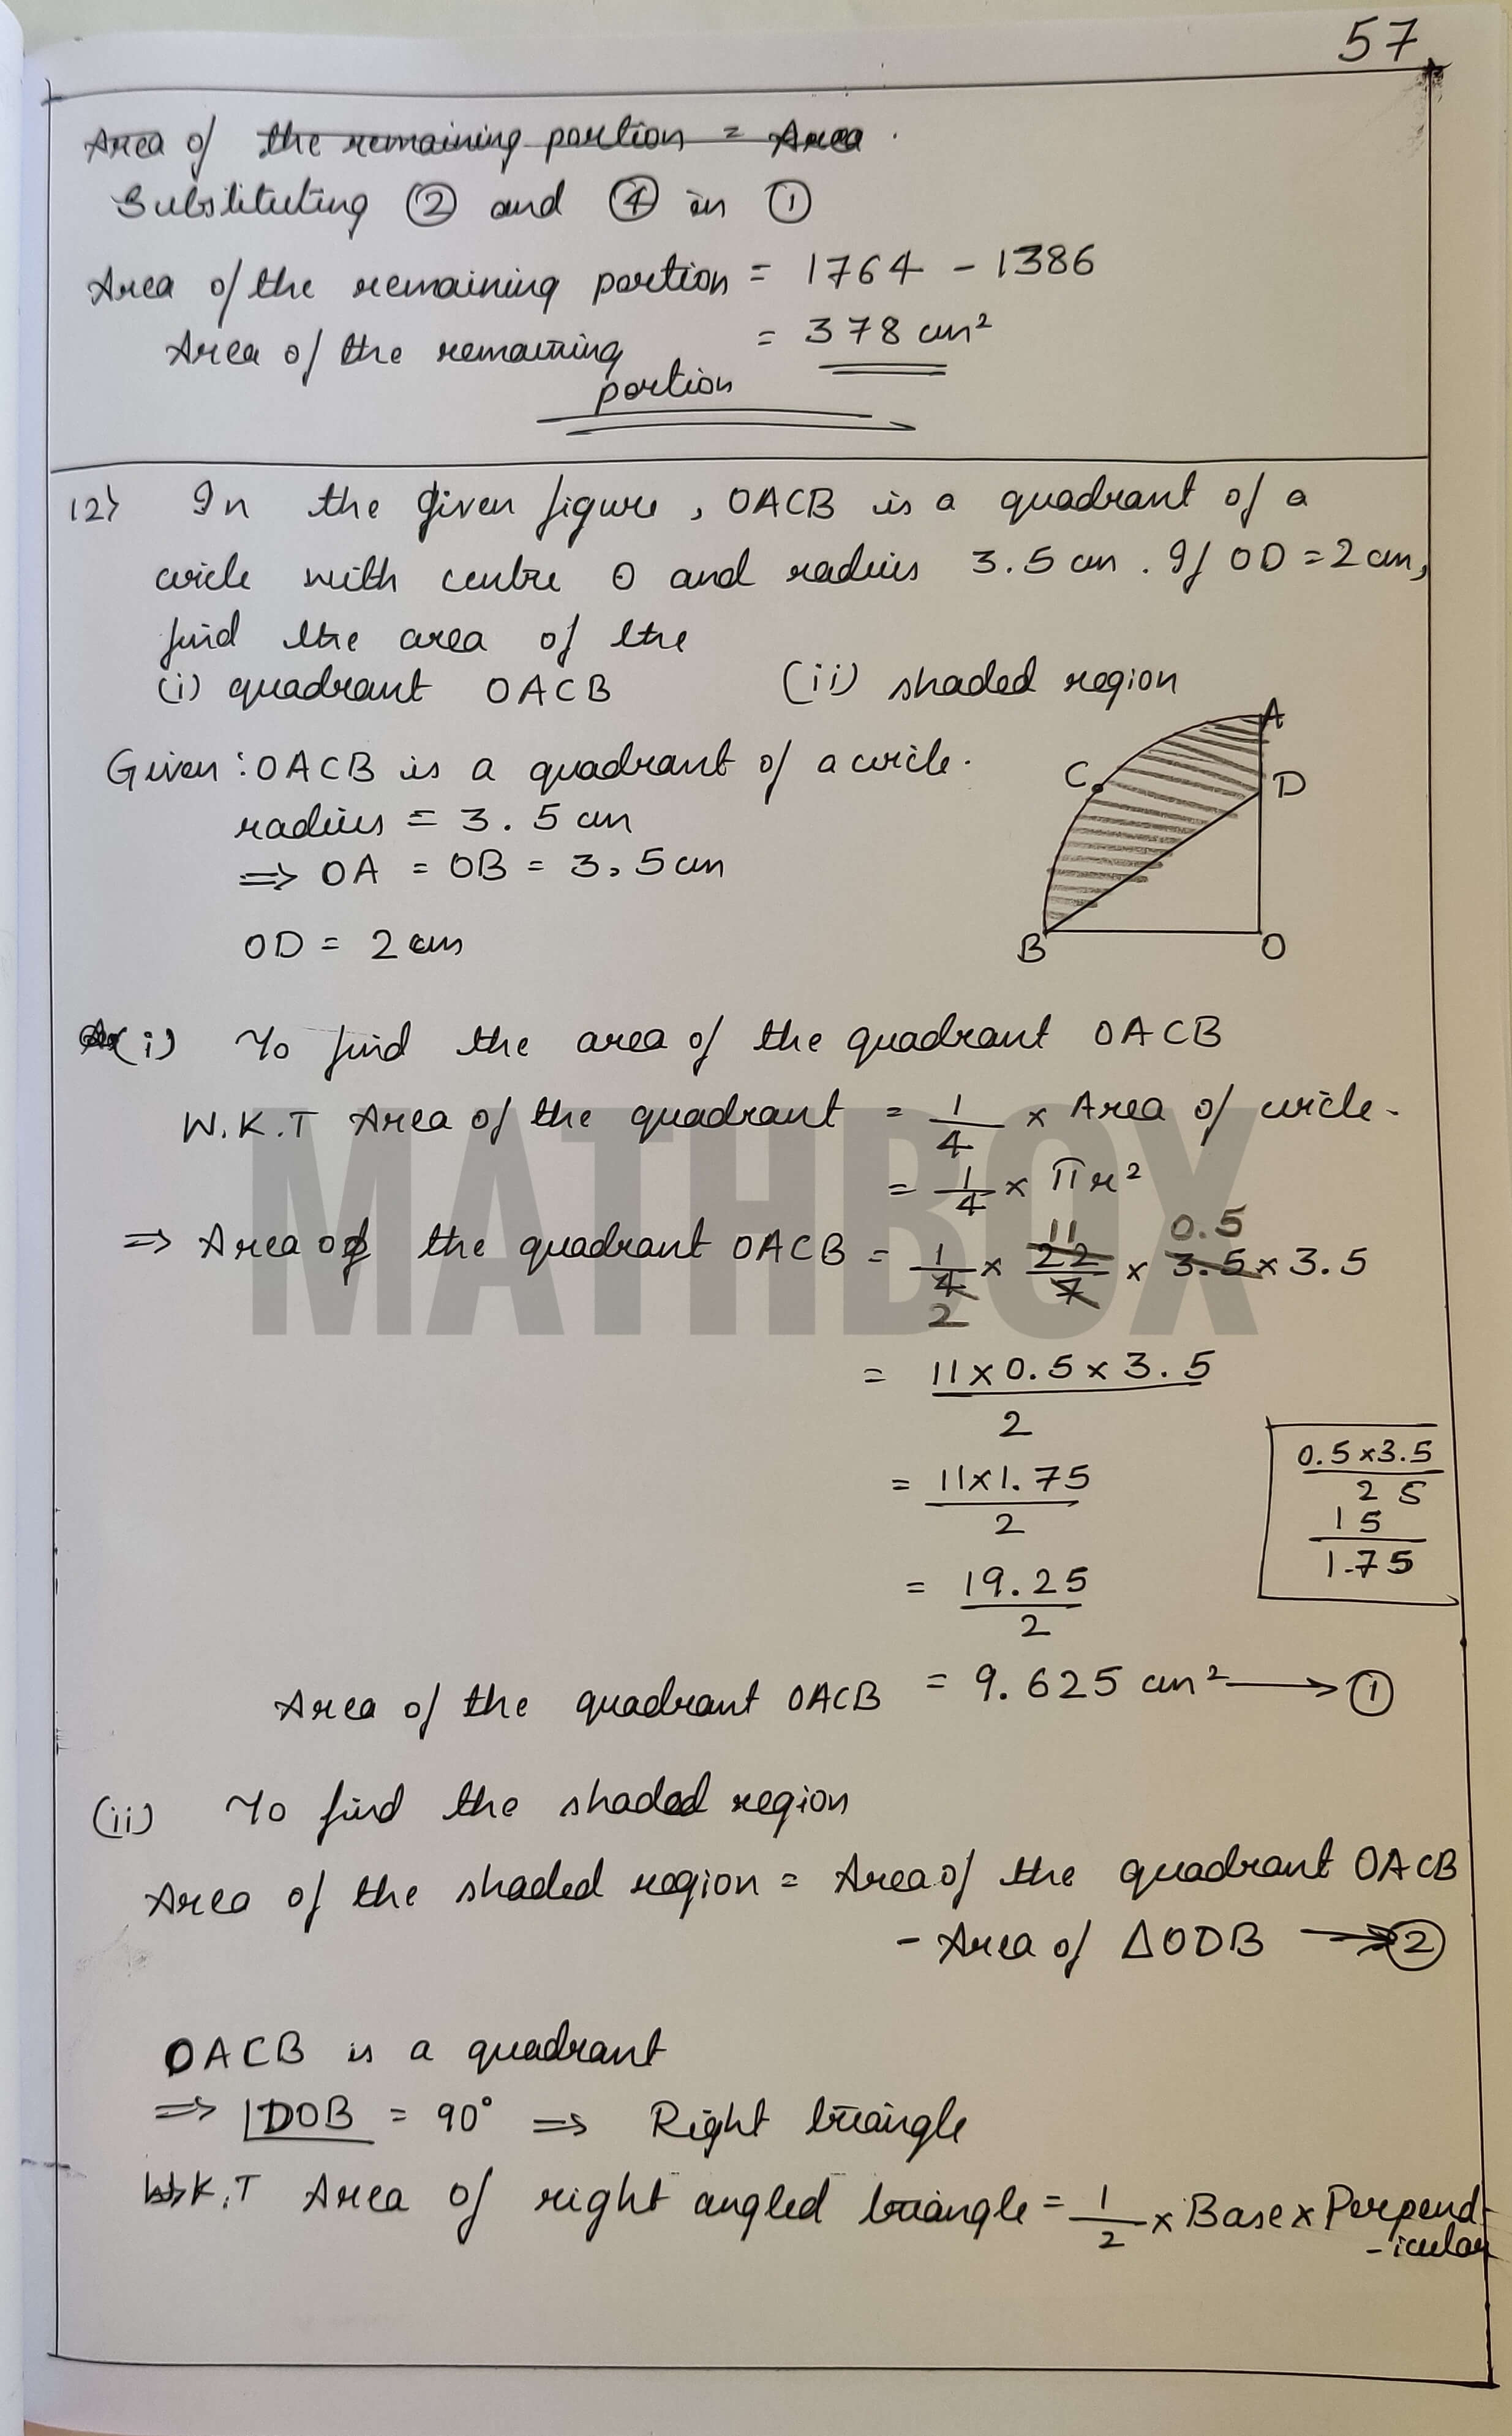 57
Area of the remaining portion = Area
Substituting ② and ④ in ①
Area of the remaining portion = 1764 - 1386
Area of the remaining = 378 cm²
portion
12) In the given figure, OACB is a quadrant of a
circle with centre O and radius 3.5 cm. If OD = 2 cm,
find the area of the
(i) quadrant OACB (ii) shaded region
Given: OACB is a quadrant of a circle.
radius = 3.5 cm
⇒ OA = OB = 3.5 cm
OD = 2 cm
A
C
D
B
O
(i) To find the area of the quadrant OACB
W.K.T Area of the quadrant = 1/4 × Area of circle.
= 1/4 × πr²
11 0.5
⇒ Area of the quadrant OACB = 1/4 × 22/7 × 3.5 × 3.5
2
= 11×0.5×3.5/2
= 11×1.75/2
= 19.25/2
0.5×3.5
2 5
1 5
1.75
Area of the quadrant OACB = 9.625 cm² → ①
(ii) To find the shaded region
Area of the shaded region = Area of the quadrant OACB
- Area of ΔODB → ②
OACB is a quadrant
⇒ ∠DOB = 90° ⇒ Right triangle
W.K.T Area of right angled triangle = 1/2 × Base × Perpend-
-icular
MATHBOX